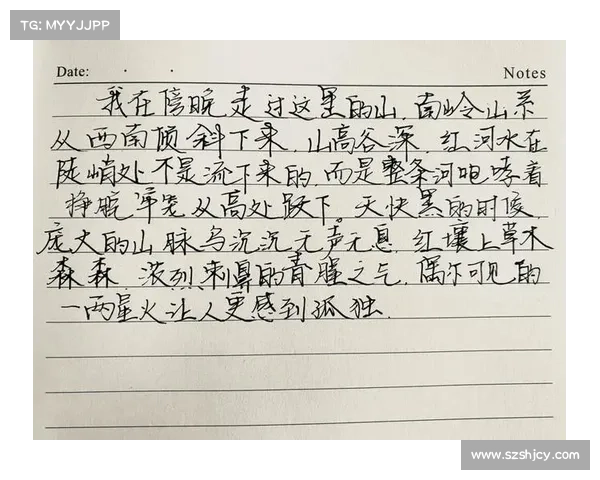 TG: MYYJJPP
Date: · ·
Notes
我在傍晚走过这里的山,南岭山系
从西南倾斜下来,山高谷深,红河水在
陡峭处不是流下来的,而是整条河咆哮着
挣脱牢笼从高处跃下。天快黑的时候,
庞大的山脉乌沉沉无声无息,红壤上草木
森森,浓烈刺鼻的青腥之气,偶尔可见的
一两星火让人更感到孤独.
www.szshjcy.com